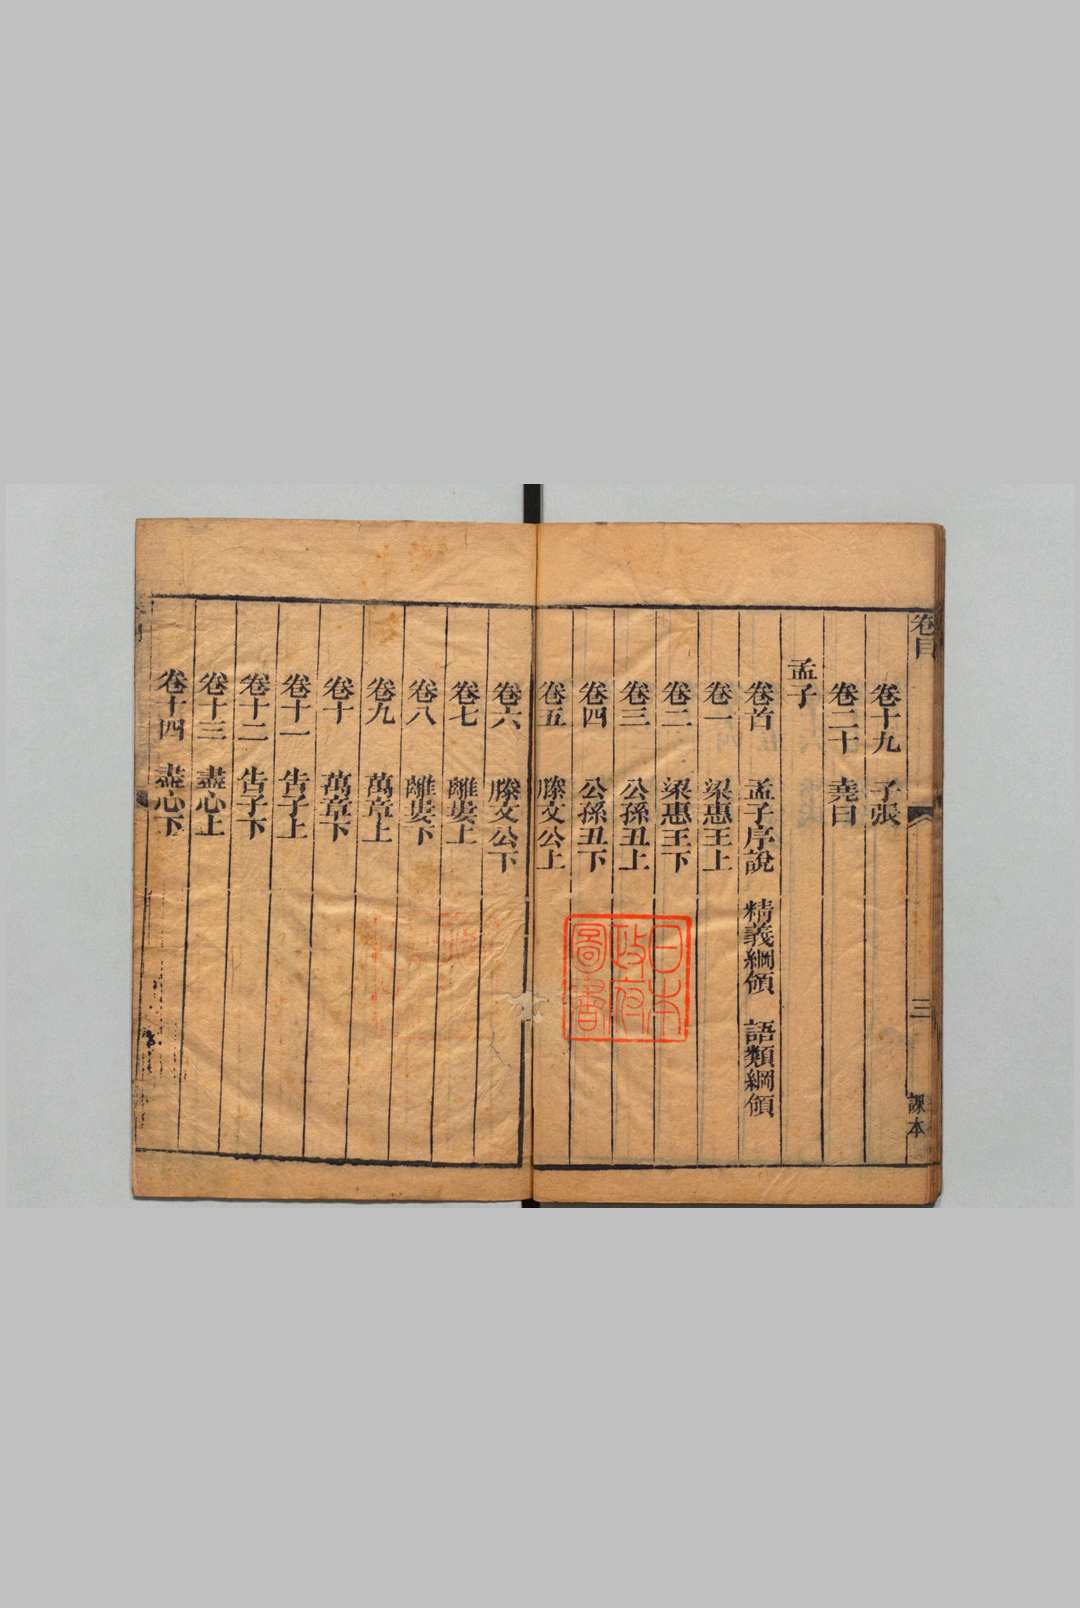 卷目
三
課本
卷十九　子張
卷二十　堯曰
孟子
卷首　孟子序說　精義綱領　語類綱領
卷一　梁惠王上
卷二　梁惠王下
卷三　公孫丑上
卷四　公孫丑下
卷五　滕文公上
卷六　滕文公下
卷七　離婁上
卷八　離婁下
卷九　萬章上
卷十　萬章下
卷十一　告子上
卷十二　告子下
卷十三　盡心上
卷十四　盡心下
日本
政府
圖書